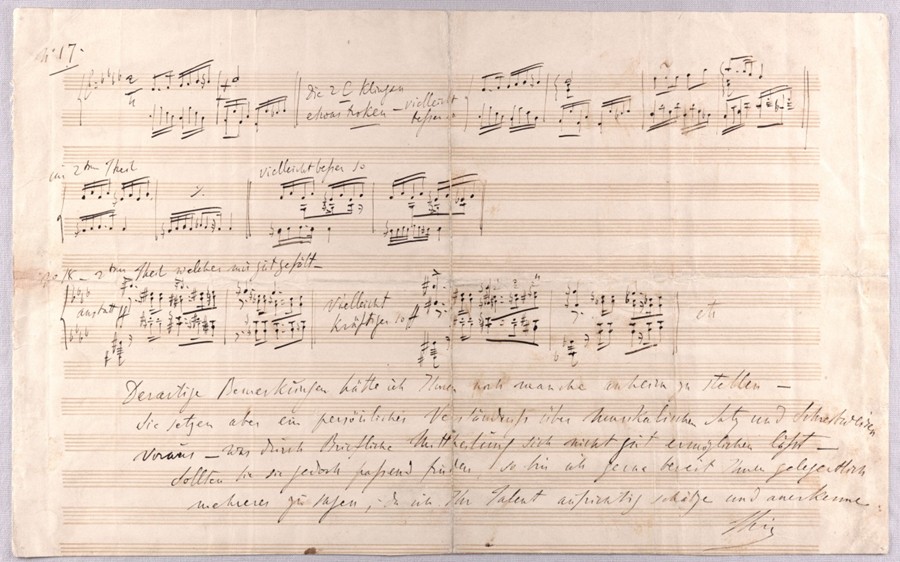 No 17.
die 2 C klingen
etwas trocken – vielleicht
besser
im 2ten Theil
vielleicht besser so
No 18 – 2ten Theil welcher mir gut gefällt –
anstatt ff
vielleicht
kräftiger so ff
etc
Derartige Bemerkungen hätte ich Ihnen noch manche anheim zu stellen –
Sie setzen aber ein persönliches Verständniss über Musikalischen Satz und
voraus – was durch Briefliche Mittheilung sich nicht gut ermöglichen lässt –
Sollten Sie sie jedoch passend finden so bin ich gerne bereit Ihnen gelegentlich
mehreres zu sagen, da ich Ihr Talent aufrichtig schätze und anerkenne.